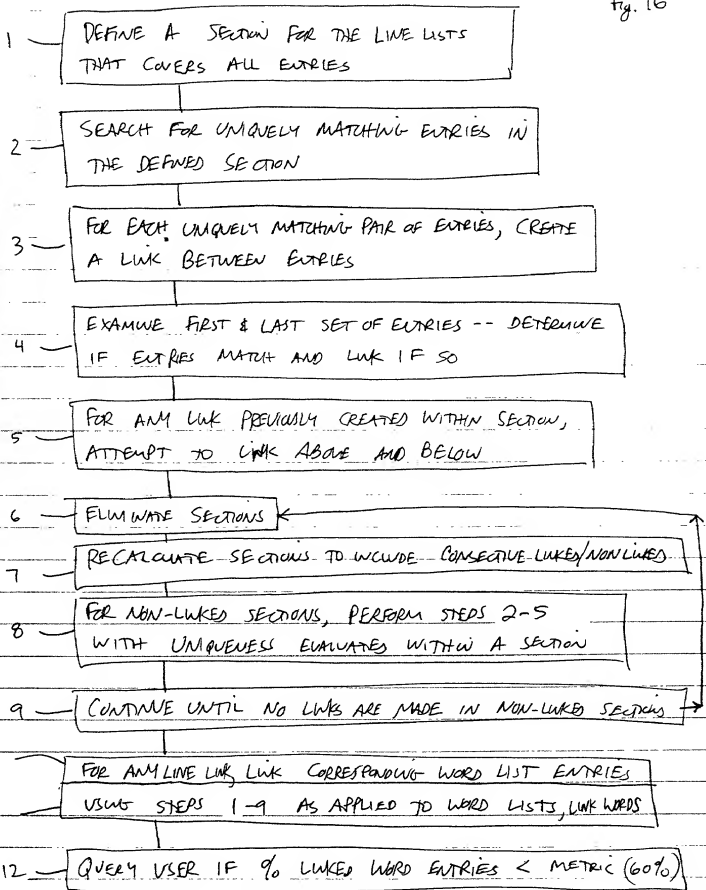 Fig. 16
1 DEFINE A SECTION FOR THE LINE LISTS
THAT COVERS ALL ENTRIES
2 SEARCH FOR UNIQUELY MATCHING ENTRIES IN
THE DEFINED SECTION
3 FOR EACH UNIQUELY MATCHING PAIR OF ENTRIES, CREATE
A LINK BETWEEN ENTRIES
4 EXAMINE FIRST & LAST SET OF ENTRIES -- DETERMINE
IF ENTRIES MATCH AND LINK IF SO
5 FOR ANY LINK PREVIOUSLY CREATED WITHIN SECTION,
ATTEMPT TO LINK ABOVE AND BELOW
6 ELIMINATE SECTIONS
7 RECALCULATE SECTIONS TO INCLUDE CONSECTIVE LINKED/NON LINKED
8 FOR NON-LINKED SECTIONS, PERFORM STEPS 2-5
WITH UNIQUENESS EVALUATED WITHIN A SECTION
9 CONTINUE UNTIL NO LINKS ARE MADE IN NON-LINKED SECTIONS
FOR ANY LINE LINK, LINK CORRESPONDING WORD LIST ENTRIES
USING STEPS 1-9 AS APPLIED TO WORD LISTS, LINK WORDS
12 QUERY USER IF % LINKED WORD ENTRIES < METRIC (60%)